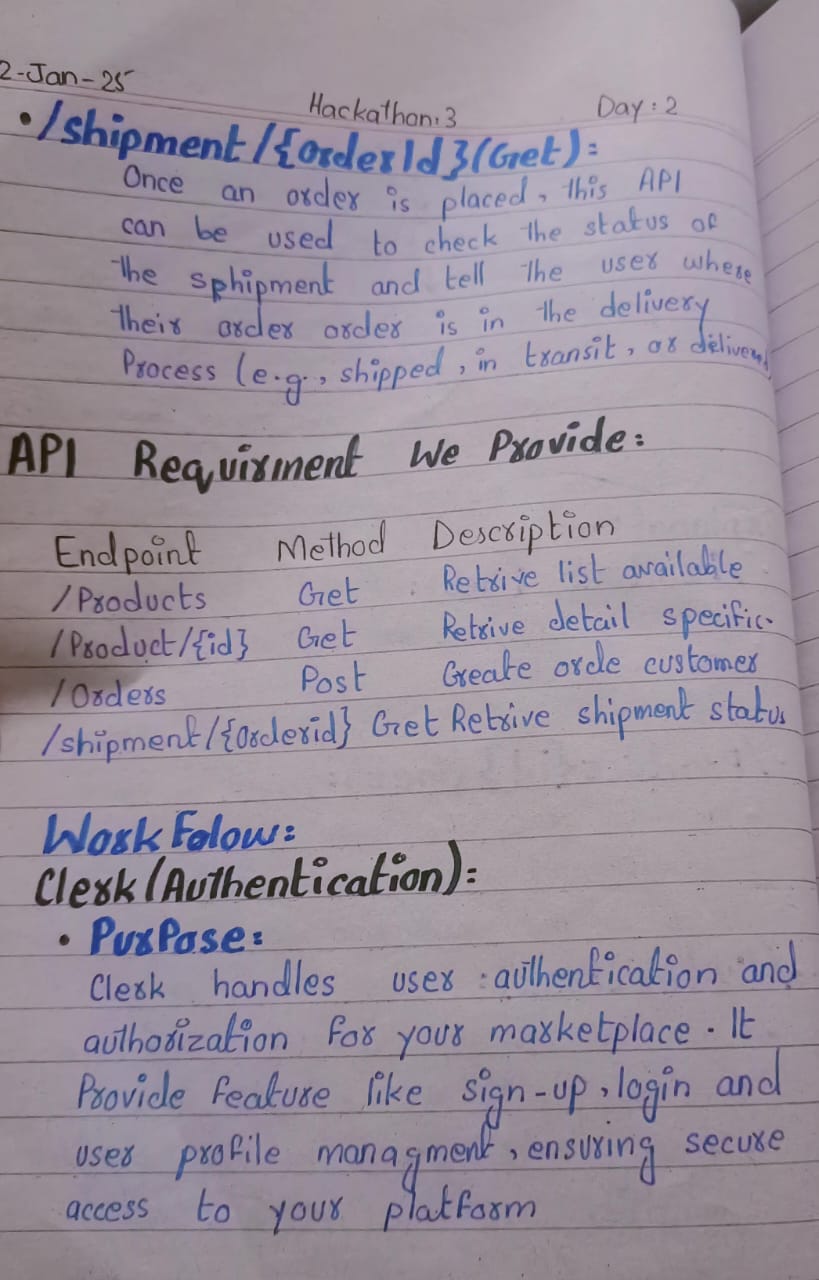 2-Jan-25
Hackathon:3 Day:2
• /shipment/{OrderId}(Get):
Once an order is placed, this API
can be used to check the status of
the sphipment and tell the user where
their order order is in the delivery
Process (e.g., shipped, in transit, or delivered
API Requirment We Provide:
Endpoint Method Description
/Products Get Retrive list available
/Product/{id} Get Retrive detail specific.
/Orders Post Create orde customer
/shipment/{Orderid} Get Retrive shipment status
Work Folow:
Clerk (Authentication):
• PurPose:
Clerk handles user authentication and
authorization for your marketplace. It
Provide feature like sign-up, login and
user profile managment, ensuring secure
access to your platform